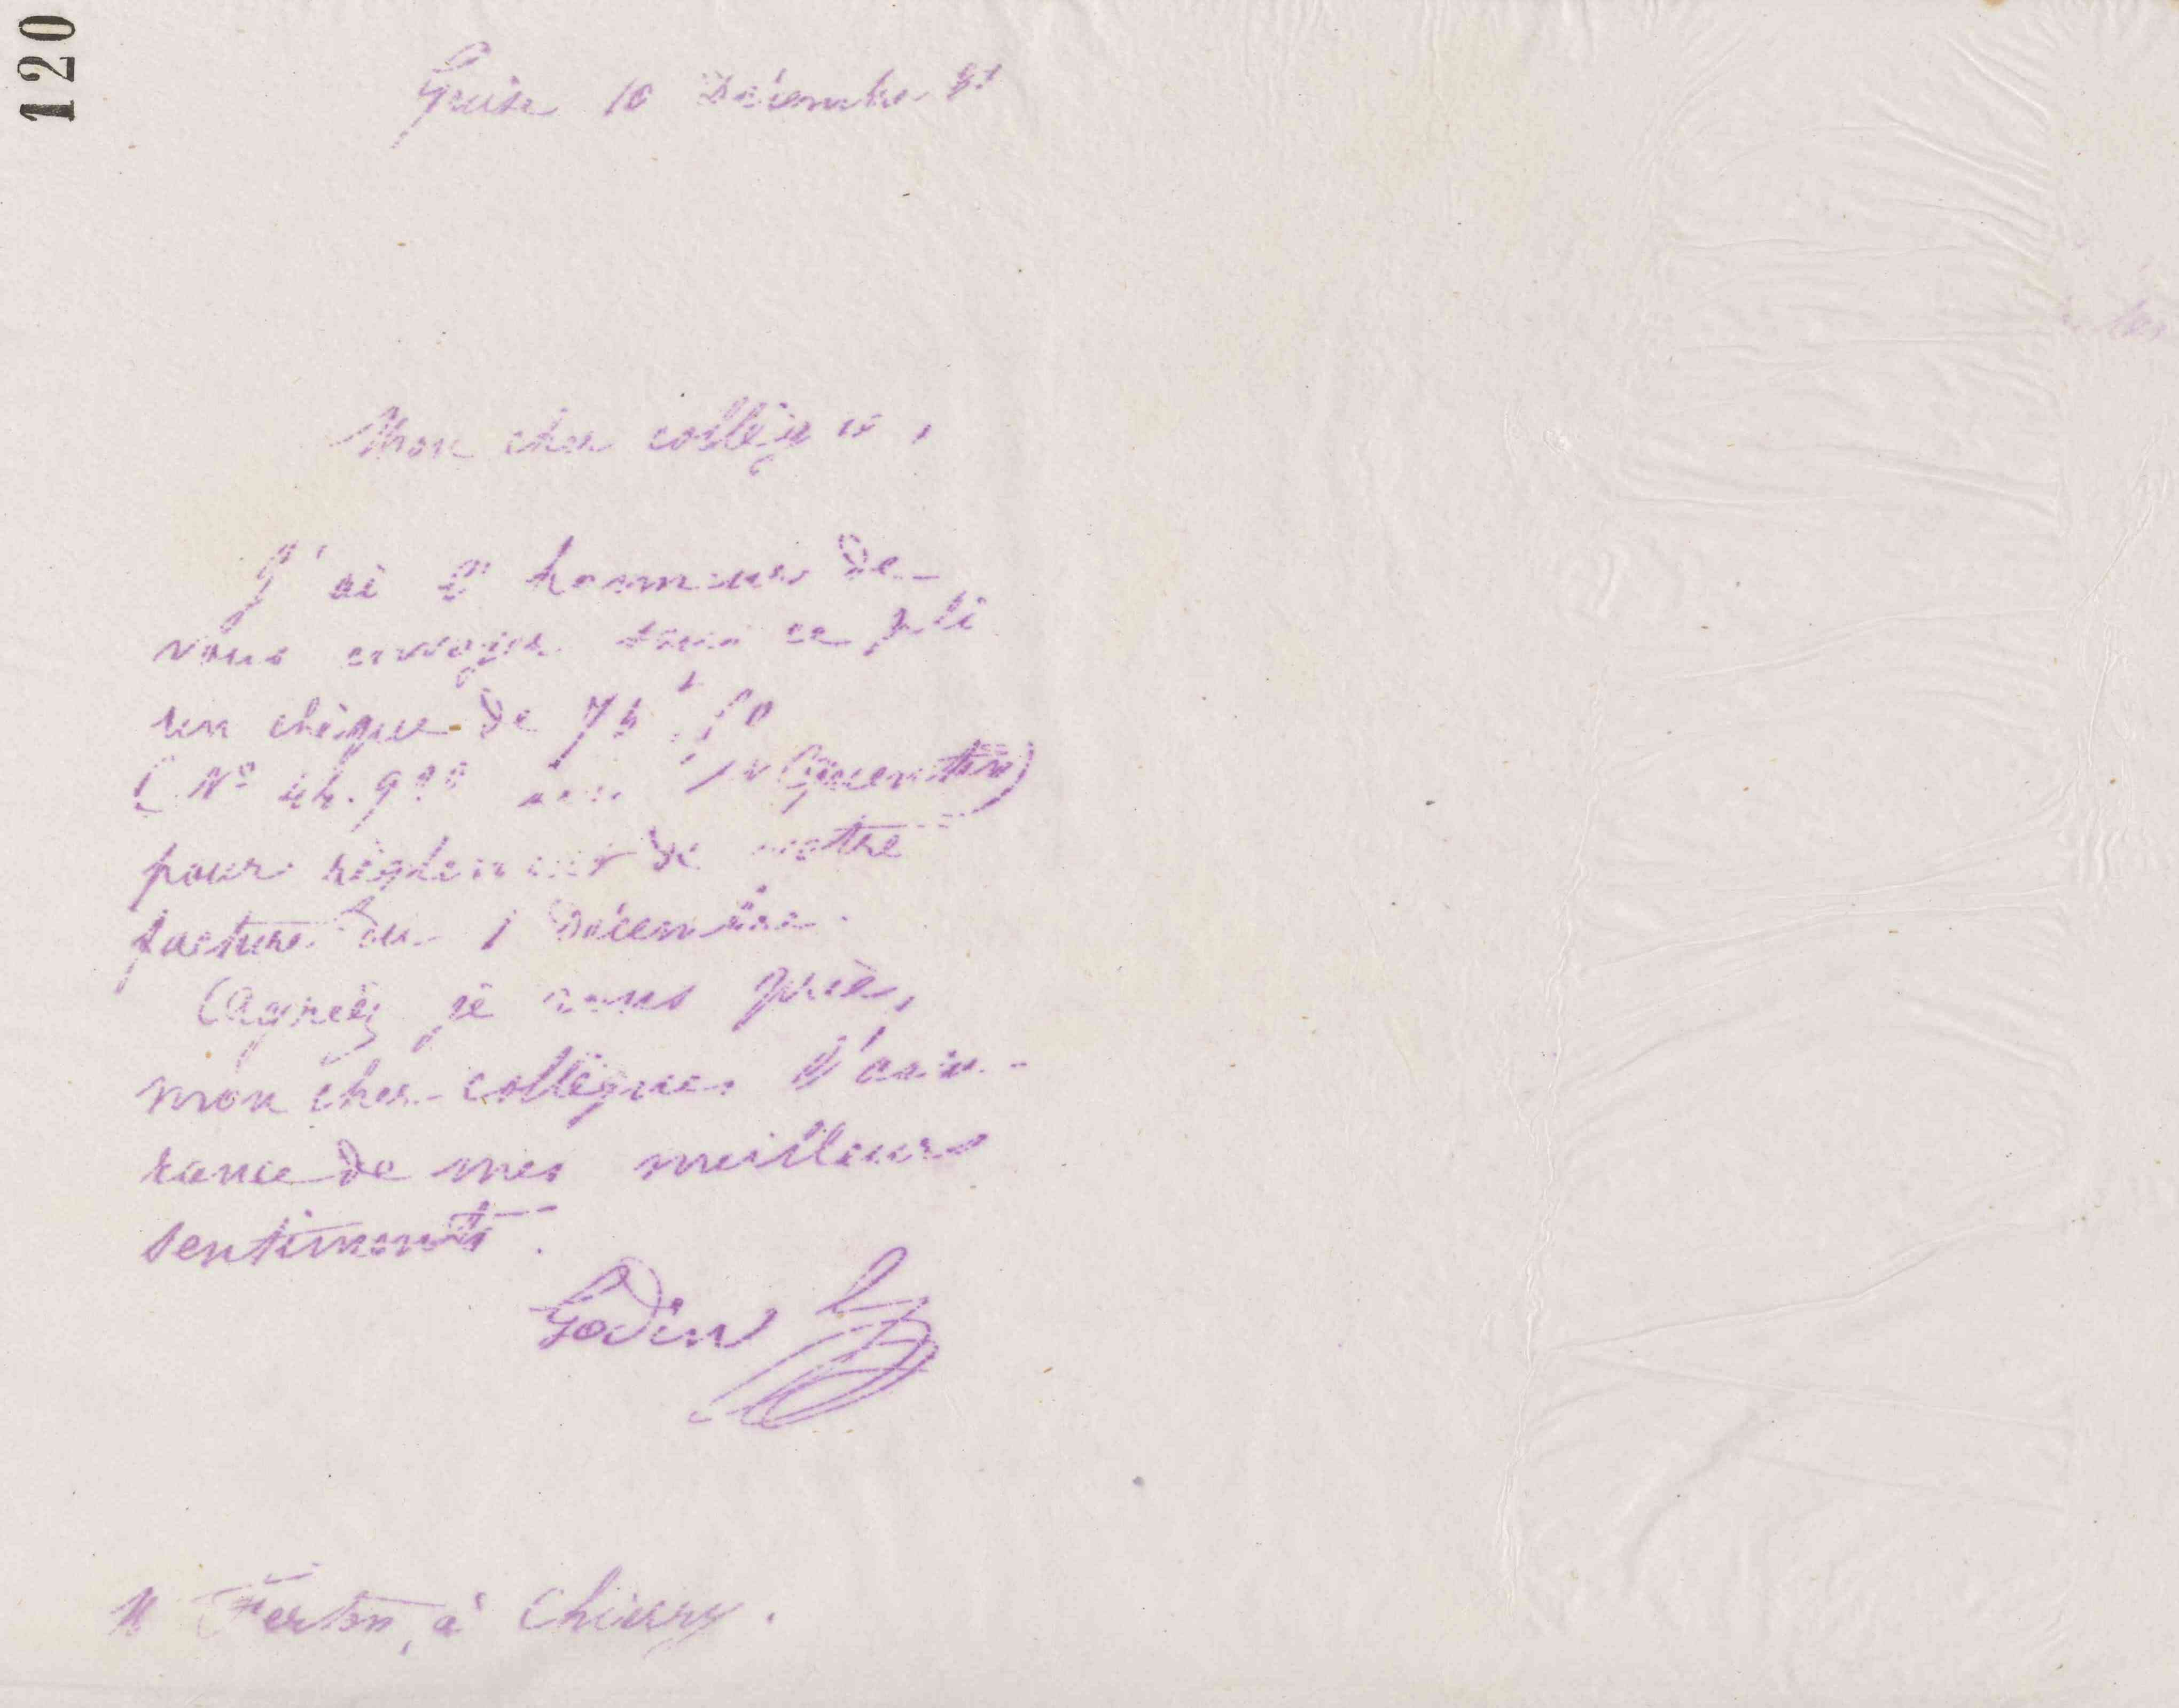 120
Guise 10 Décembre 81
Mon cher collègue,
J'ai l'honneur de
vous envoyer sous ce pli
un chèque de 75 f. 50
(No Quentin)
pour règlement de votre
facture du 1 Décembre.
Agréez je vous prie,
mon cher collègue, l'assu-
rance de mes meilleurs
sentiments.
Godin
M Ferton, à Chierry.